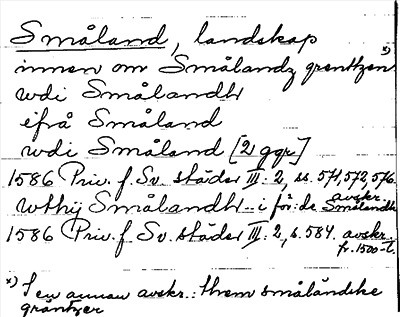 Småland, landskap
innen om Smålandz grenttzen x)
wdi Smålandh
ifrå Småland
wdi Småland [2 ggr]
1586 Priv. f. Sv. städer III: 2, ss. 571, 572, 576.
wthij Smålandh - i för:de avskr. Smålandh
1586 Priv. f. Sv. städer III: 2, s. 584. avskr. fr. 1500-t.
x) I en annan avskr.: them småländske
gräntzer